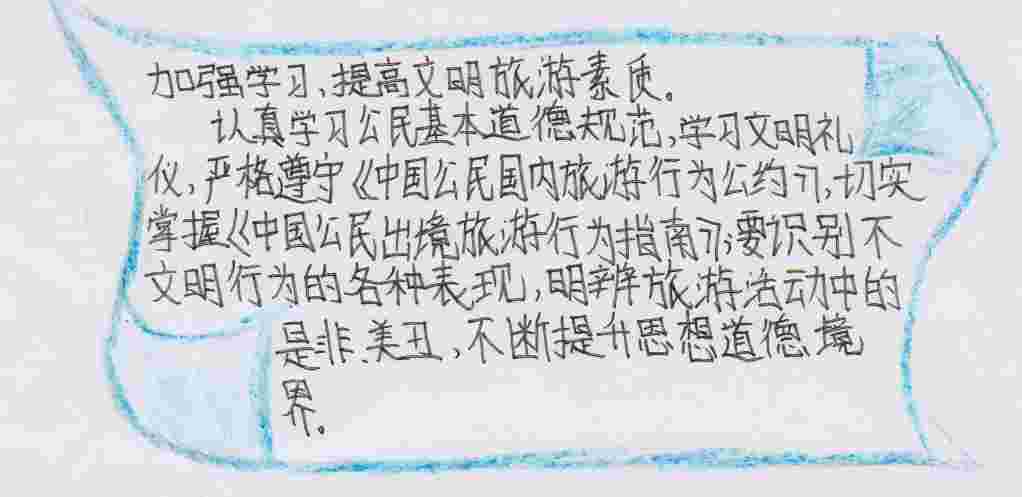 加强学习、提高文明旅游素质。
认真学习公民基本道德规范,学习文明礼
仪,严格遵守《中国公民国内旅游行为公约》,切实
掌握《中国公民出境旅游行为指南》;要识别不
文明行为的各种表现,明辨旅游活动中的
是非、美丑,不断提升思想道德境
界。